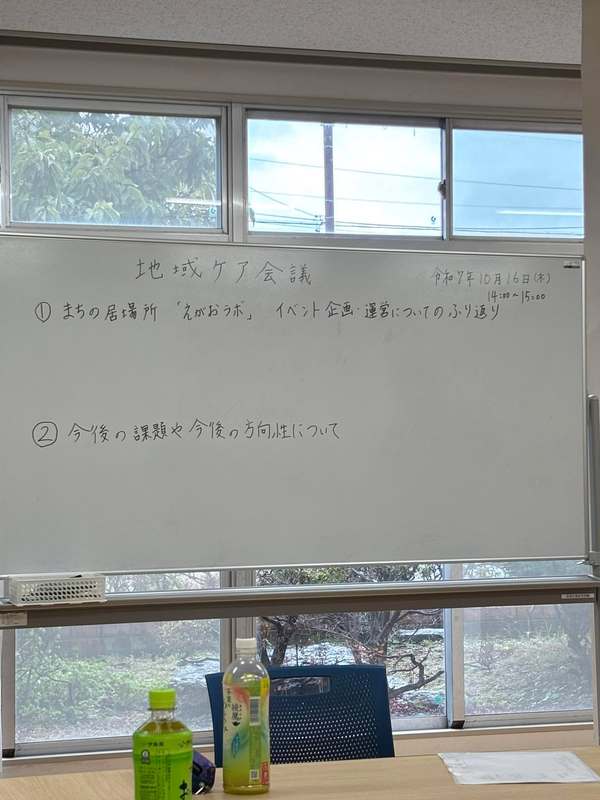 地域ケア会議
令和7年10月16日(木)
14:00~15:00
① まちの居場所 「えがおラボ」 イベント企画・運営についてのふり返り
② 今後の課題や今後の方向性について